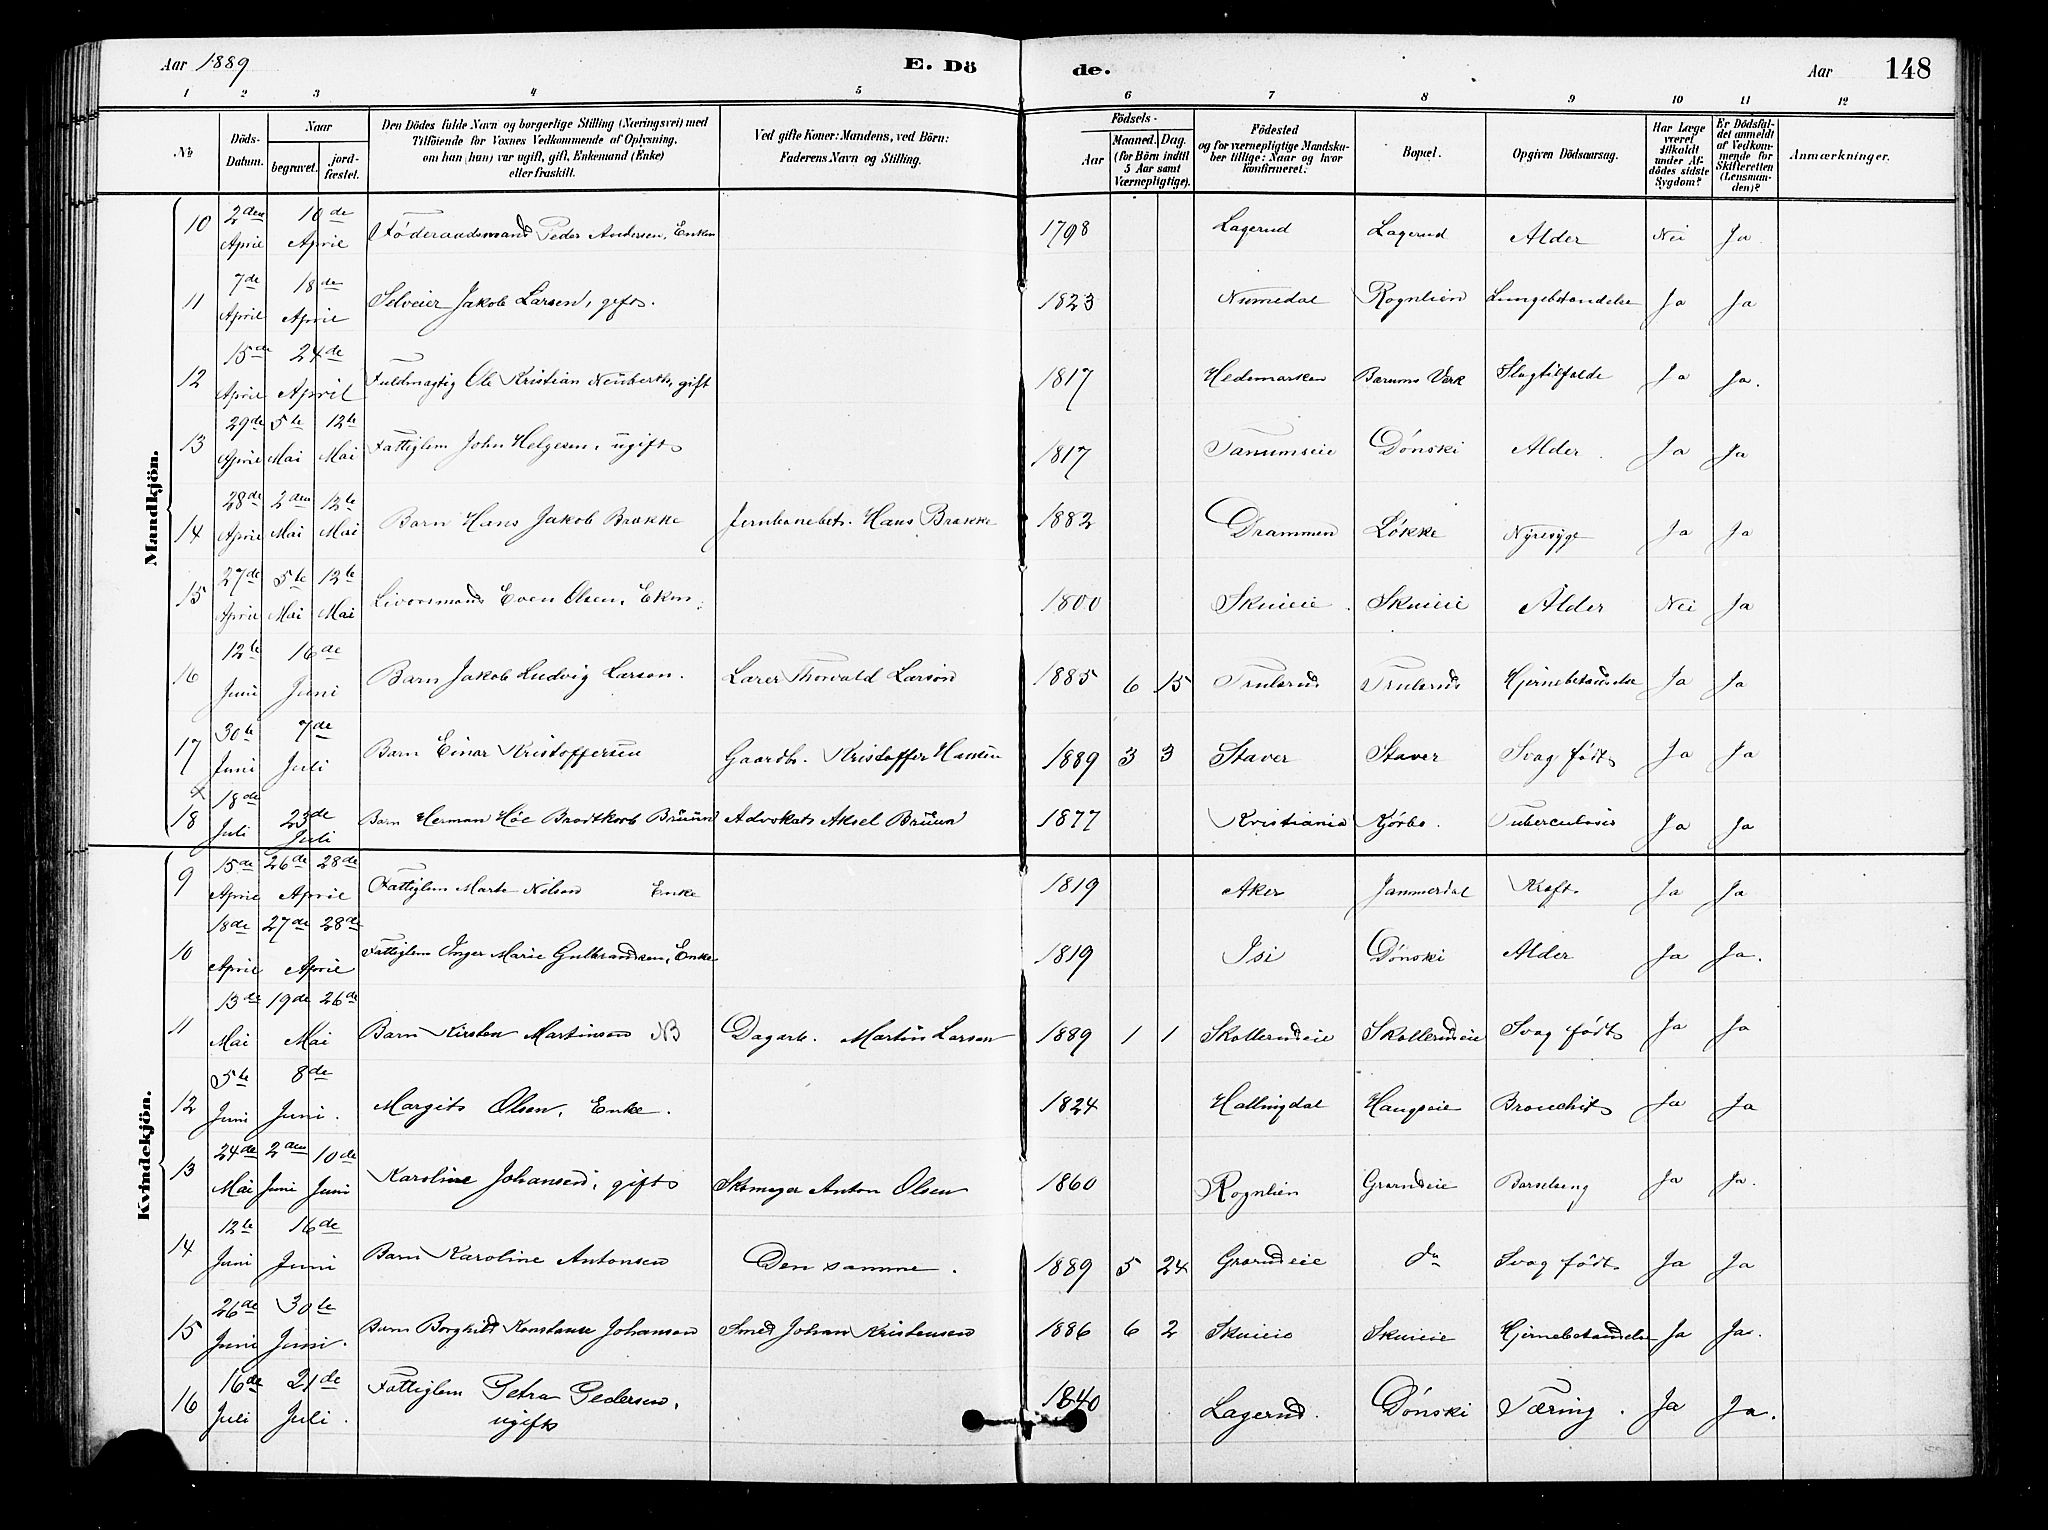 Aar 1889
E. Dö de.
Aar 148
1 2 3 4 5 6 7 8 9 10 11 12
No
Döds-Datum.
Naar begravet. jordfæstet.
Den Dödes fulde Navn og borgerlige Stilling (Næringsvei) med Tilföiende for Voxnes Vedkommende af Oplysning, om han (hun) var ugift, gift, Enkemand (Enke) eller fraskilt.
Ved gifte Koner: Mandens, ved Börn: Faderens Navn og Stilling.
Födsels-
Aar Maaned. Dag. (for Börn indtil 5 Aar samt Værnepligtige).
Födested og for værnepligtige Mandskaber tillige: Naar og hvor konfirmeret.
Bopæl.
Opgiven Dödsaarsag.
Har Læge været tilkaldt under Afdödes sidste Sygdom?
Er Dödsfaldet anmeldt af Vedkommende for Skifteretten (Lensmanden)?
Anmærkninger.
Mandkjön.
10 2den April 10de April Föderaadsmand Peder Andersen, Enkm 1798 Lagerud Lagerud Alder Nei Ja
11 7de April 18de April Selveier Jakob Larsen, gift. 1823 Numedal Rognlien Lungebetændelse Ja Ja
12 15de April 24de April Fuldmægtig Ole Kristian Neuberth, gift 1817 Hedemarken Bærums Værk Slagtilfælde Ja Ja.
13 29de April 5te Mai 12te Mai Fattiglem John Helgesen, ugift 1817 Tanumseie Dønski Alder. Ja Ja
14 28de April 2den Mai 12te Mai Barn Hans Jakob Brække Jernbanebetj. Hans Brække 1882 Drammen Løkke Nyresyge Ja Ja
15 27de April 5te Mai 12te Mai Even Olsen, Ekm. 1800 Skuieie. Skuieie Alder Nei Ja
16 12te Juni 16de Juni Barn Jakob Ludvig Larsen. Lærer Thorvald Larsen 1885 6 15 Trulsrud Trulsrud Hjernebetændelse Ja Ja
17 30te Juni 7de Juli Barn Einar Kristoffersen Gaardbr. Kristoffer Hansen 1889 3 3 Staver Staver Svag født Ja Ja
x 18 18de Juli 23de Juli Barn Herman Høe Brodtkorb Bruun Advokat Aksel Bruun 1877 Kristiania Kjørbo. Tuberculosis Ja Ja
Kvindekjön.
9 15de April 26de 28de April Fattiglem Marte Nilsen Enke 1819 Aker Jammerdal Kræft. Ja Ja
10 18de April 27de 28de April Fattiglem Inger Marie Gulbrandsen, Enke 1819 Isi Dønski Alder Ja Ja.
11 13de Mai 19de 26de Mai Barn Kirsten Martinsen NB Dagarb. Martin Larsen 1889 1 1 Skollerudeie Skollerudeie Svag født Ja Ja
12 5te Juni 8de Juni. Margit Olsen, Enke. 1824 Hallingdal Haugseie Bronchit Ja Ja
13 24de Mai 2den Juni 10de Juni Karoline Johansen, gift Skomager Anton Olsen 1860 Rognlien Grorudeie Barselseng Ja Ja.
14 12te Juni 16de Juni Barn Karoline Antonsen Den samme. 1889 5 24 Grorudeie do Svag født. Ja Ja
15 26de Juni 30te Juni. Barn Borghild Konstanse Johansen Smed Johan Kristensen 1886 6 2 Skuieie Skuieie Hjernebetændelse Ja Ja.
16 16de Juli 21de Juli. Fattiglem Petra Pedersen, ugift 1840 Lagerud. Dønski Tæring. Ja Ja.